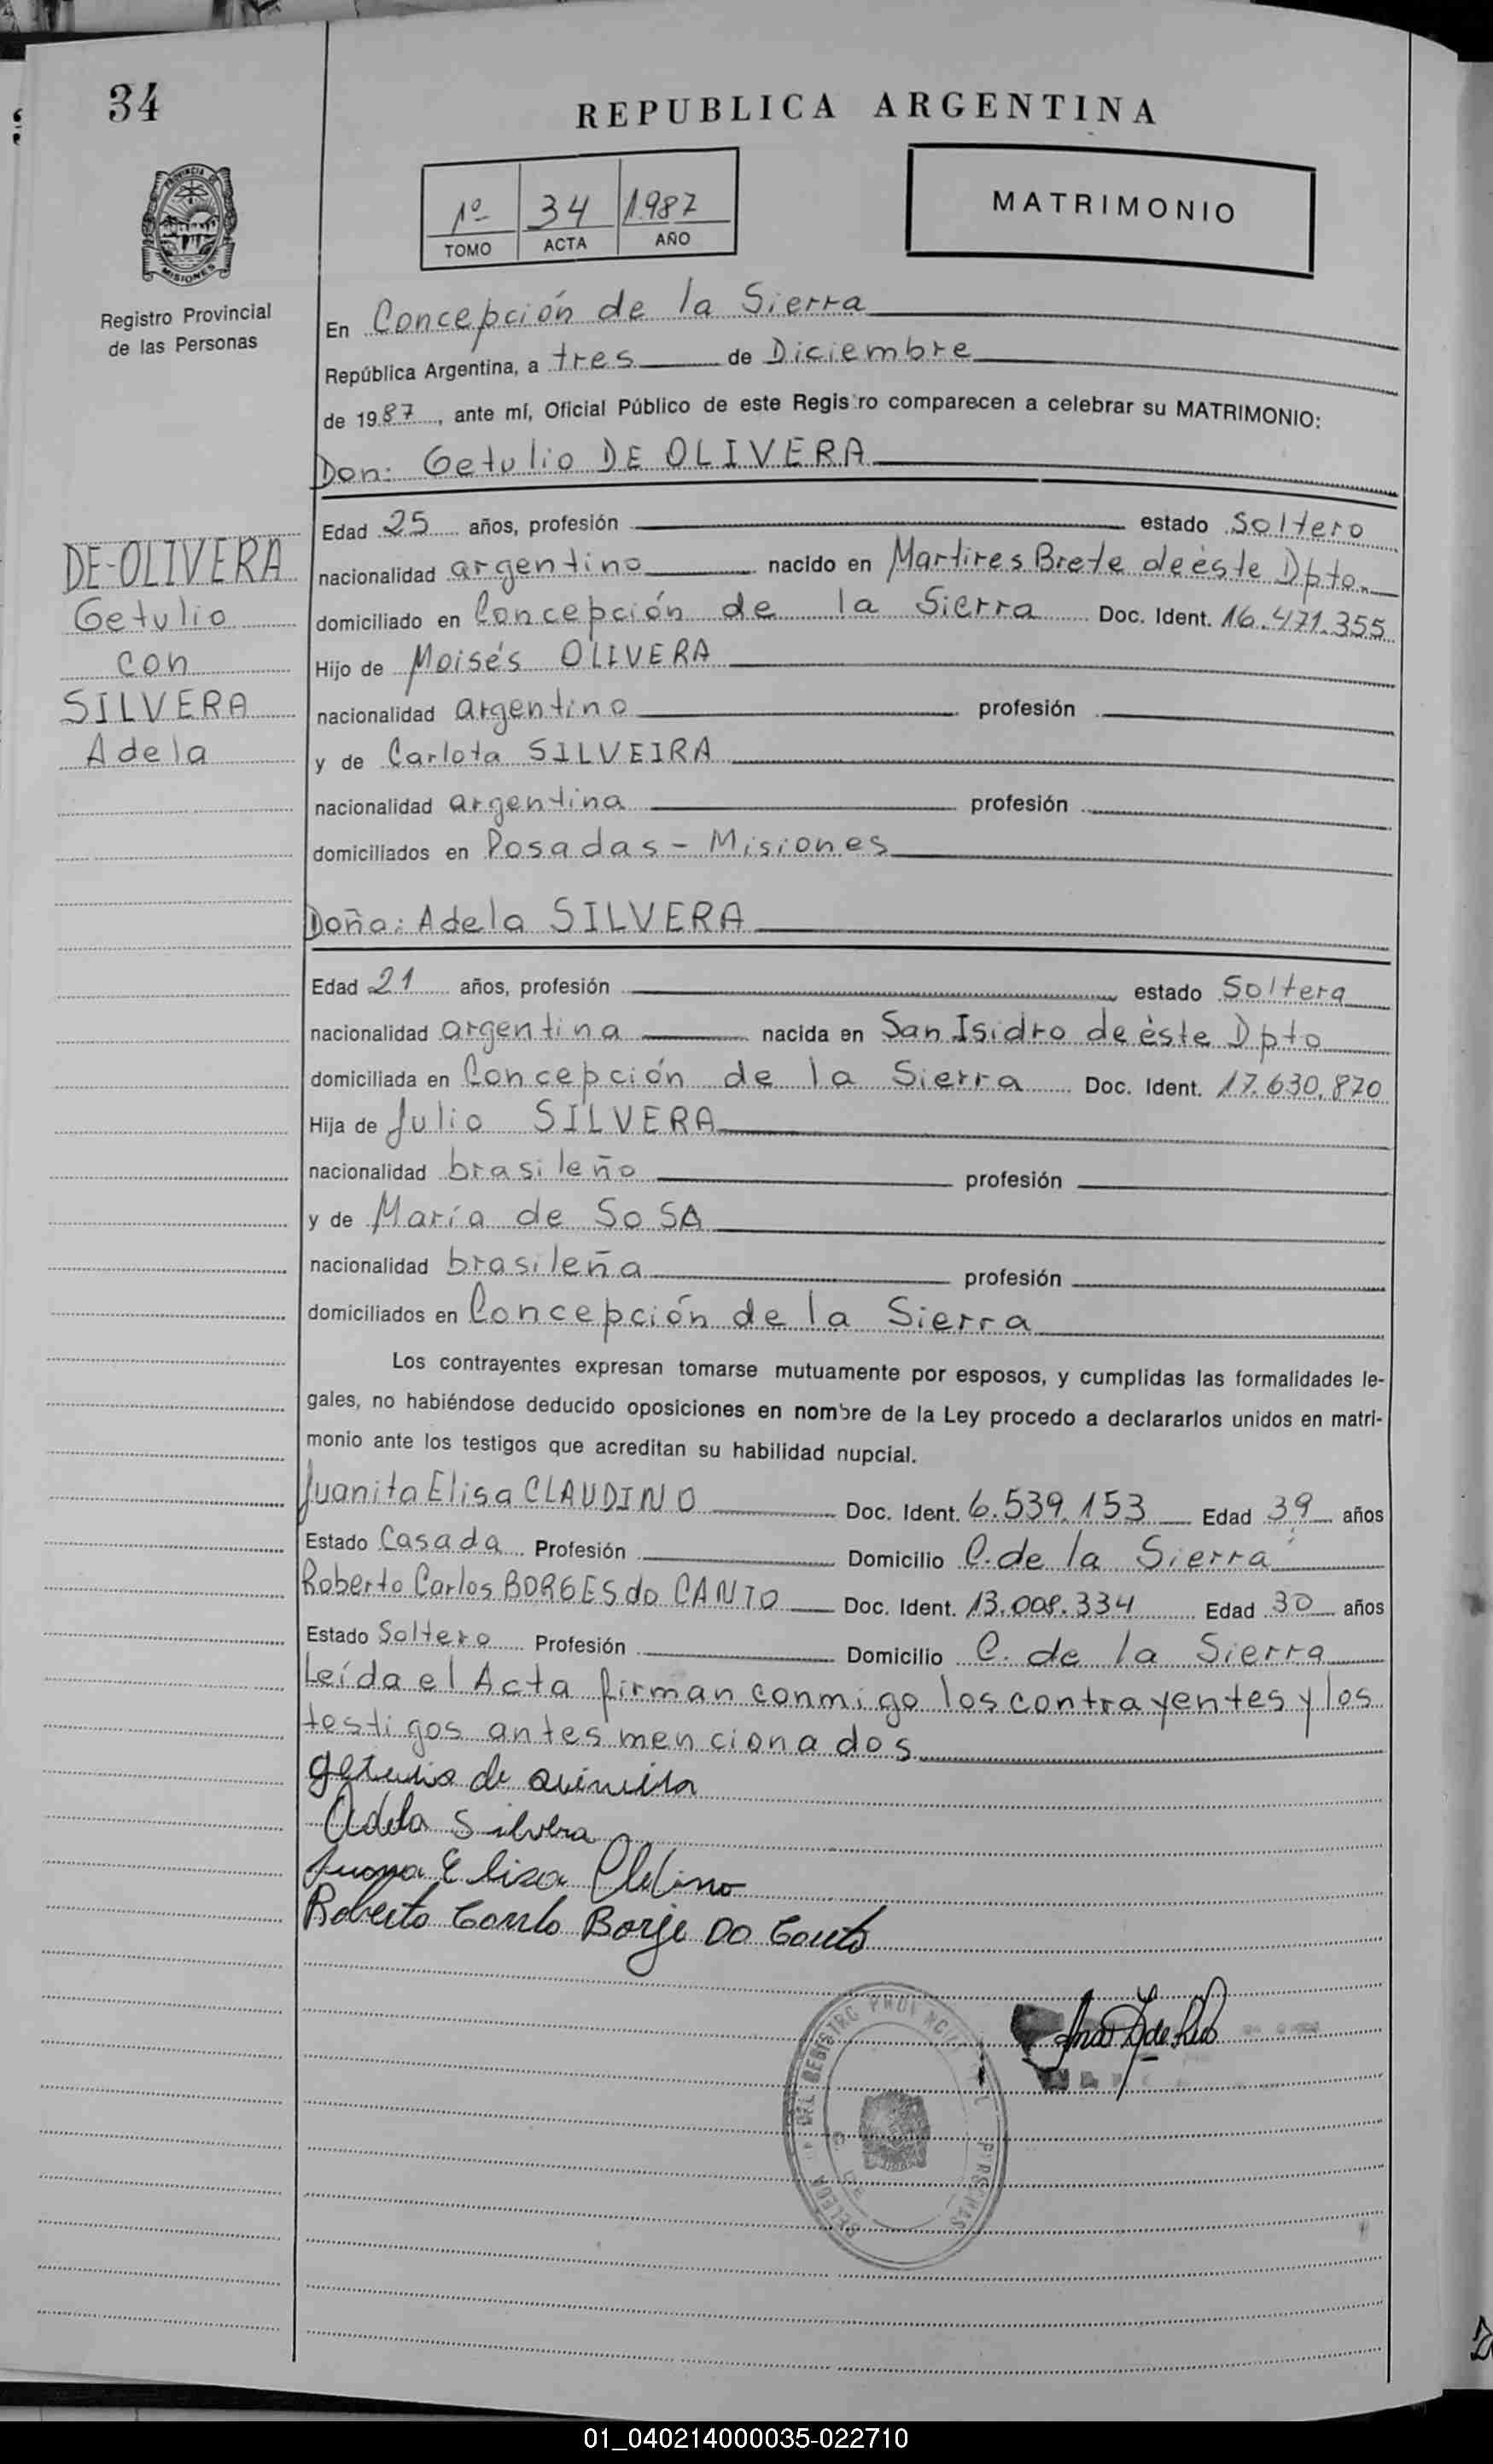 34
REPUBLICA ARGENTINA
PROVINCIA DE
MISIONES
Registro Provincial
de las Personas
1º 34 1987
TOMO ACTA AÑO
MATRIMONIO
En Concepción de la Sierra
República Argentina, a tres de Diciembre
de 1987, ante mí, Oficial Público de este Registro comparecen a celebrar su MATRIMONIO:
Don: Getulio DE OLIVERA
DE-OLIVERA
Getulio
con
SILVERA
Adela
Edad 25 años, profesión estado Soltero
nacionalidad argentino nacido en Martires Brete de èste Dpto.
domiciliado en Concepción de la Sierra Doc. Ident. 16.471.355
Hijo de Moisés OLIVERA
nacionalidad argentino profesión
y de Carlota SILVEIRA
nacionalidad argentina profesión
domiciliados en Posadas - Misiones
Doña: Adela SILVERA
Edad 21 años, profesión estado Soltera
nacionalidad argentina nacida en San Isidro de èste Dpto
domiciliada en Concepción de la Sierra Doc. Ident. 17.630.870
Hija de Julio SILVERA
nacionalidad brasileño profesión
y de María de SOSA
nacionalidad brasileña profesión
domiciliados en Concepción de la Sierra
Los contrayentes expresan tomarse mutuamente por esposos, y cumplidas las formalidades le-
gales, no habiéndose deducido oposiciones en nombre de la Ley procedo a declararlos unidos en matri-
monio ante los testigos que acreditan su habilidad nupcial.
Juanita Elisa CLAUDINO Doc. Ident. 6.539.153 Edad 39 años
Estado Casada Profesión Domicilio C. de la Sierra
Roberto Carlos BORGES do CANTO Doc. Ident. 13.008.334 Edad 30 años
Estado Soltero Profesión Domicilio C. de la Sierra
Leída el Acta firman conmigo los contrayentes y los
testigos antes mencionados
getulio de
Adela Silvera
Juana Eliza
Roberto Carlo Borje DO
DEL REGISTRO PROVINCIAL
PERSONAS
01_040214000035-022710